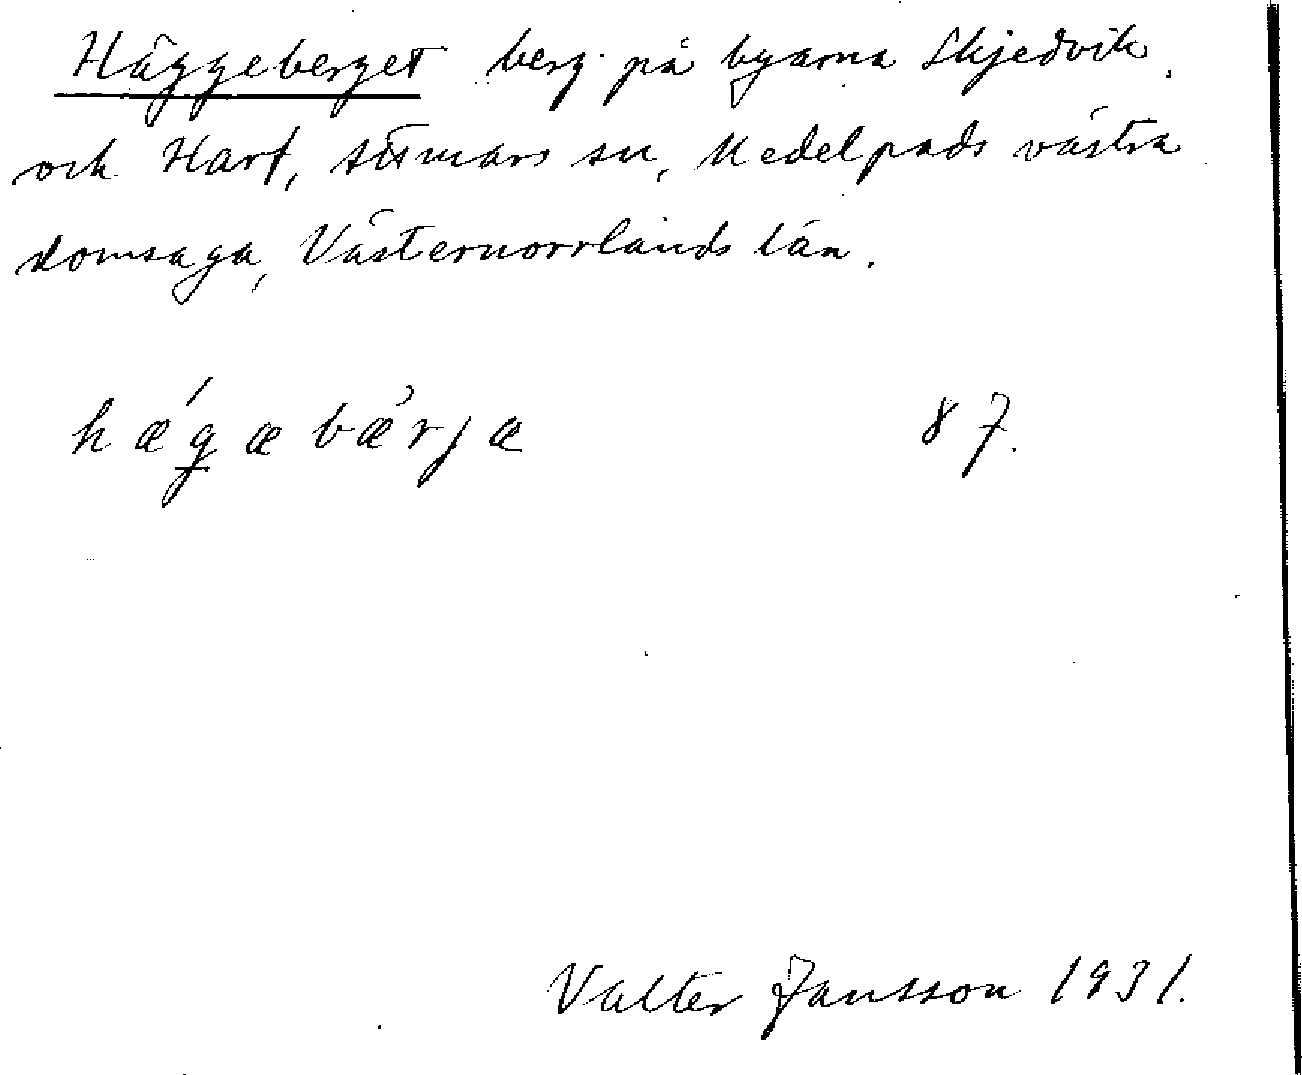 Häggeberget berg på byarna Skjedvik
och Hart, Attmars sn, Medelpads västra
domsaga, Västernorrlands län.
hǽgæbæ̀rjæ 87.
Valter Jansson 1931.